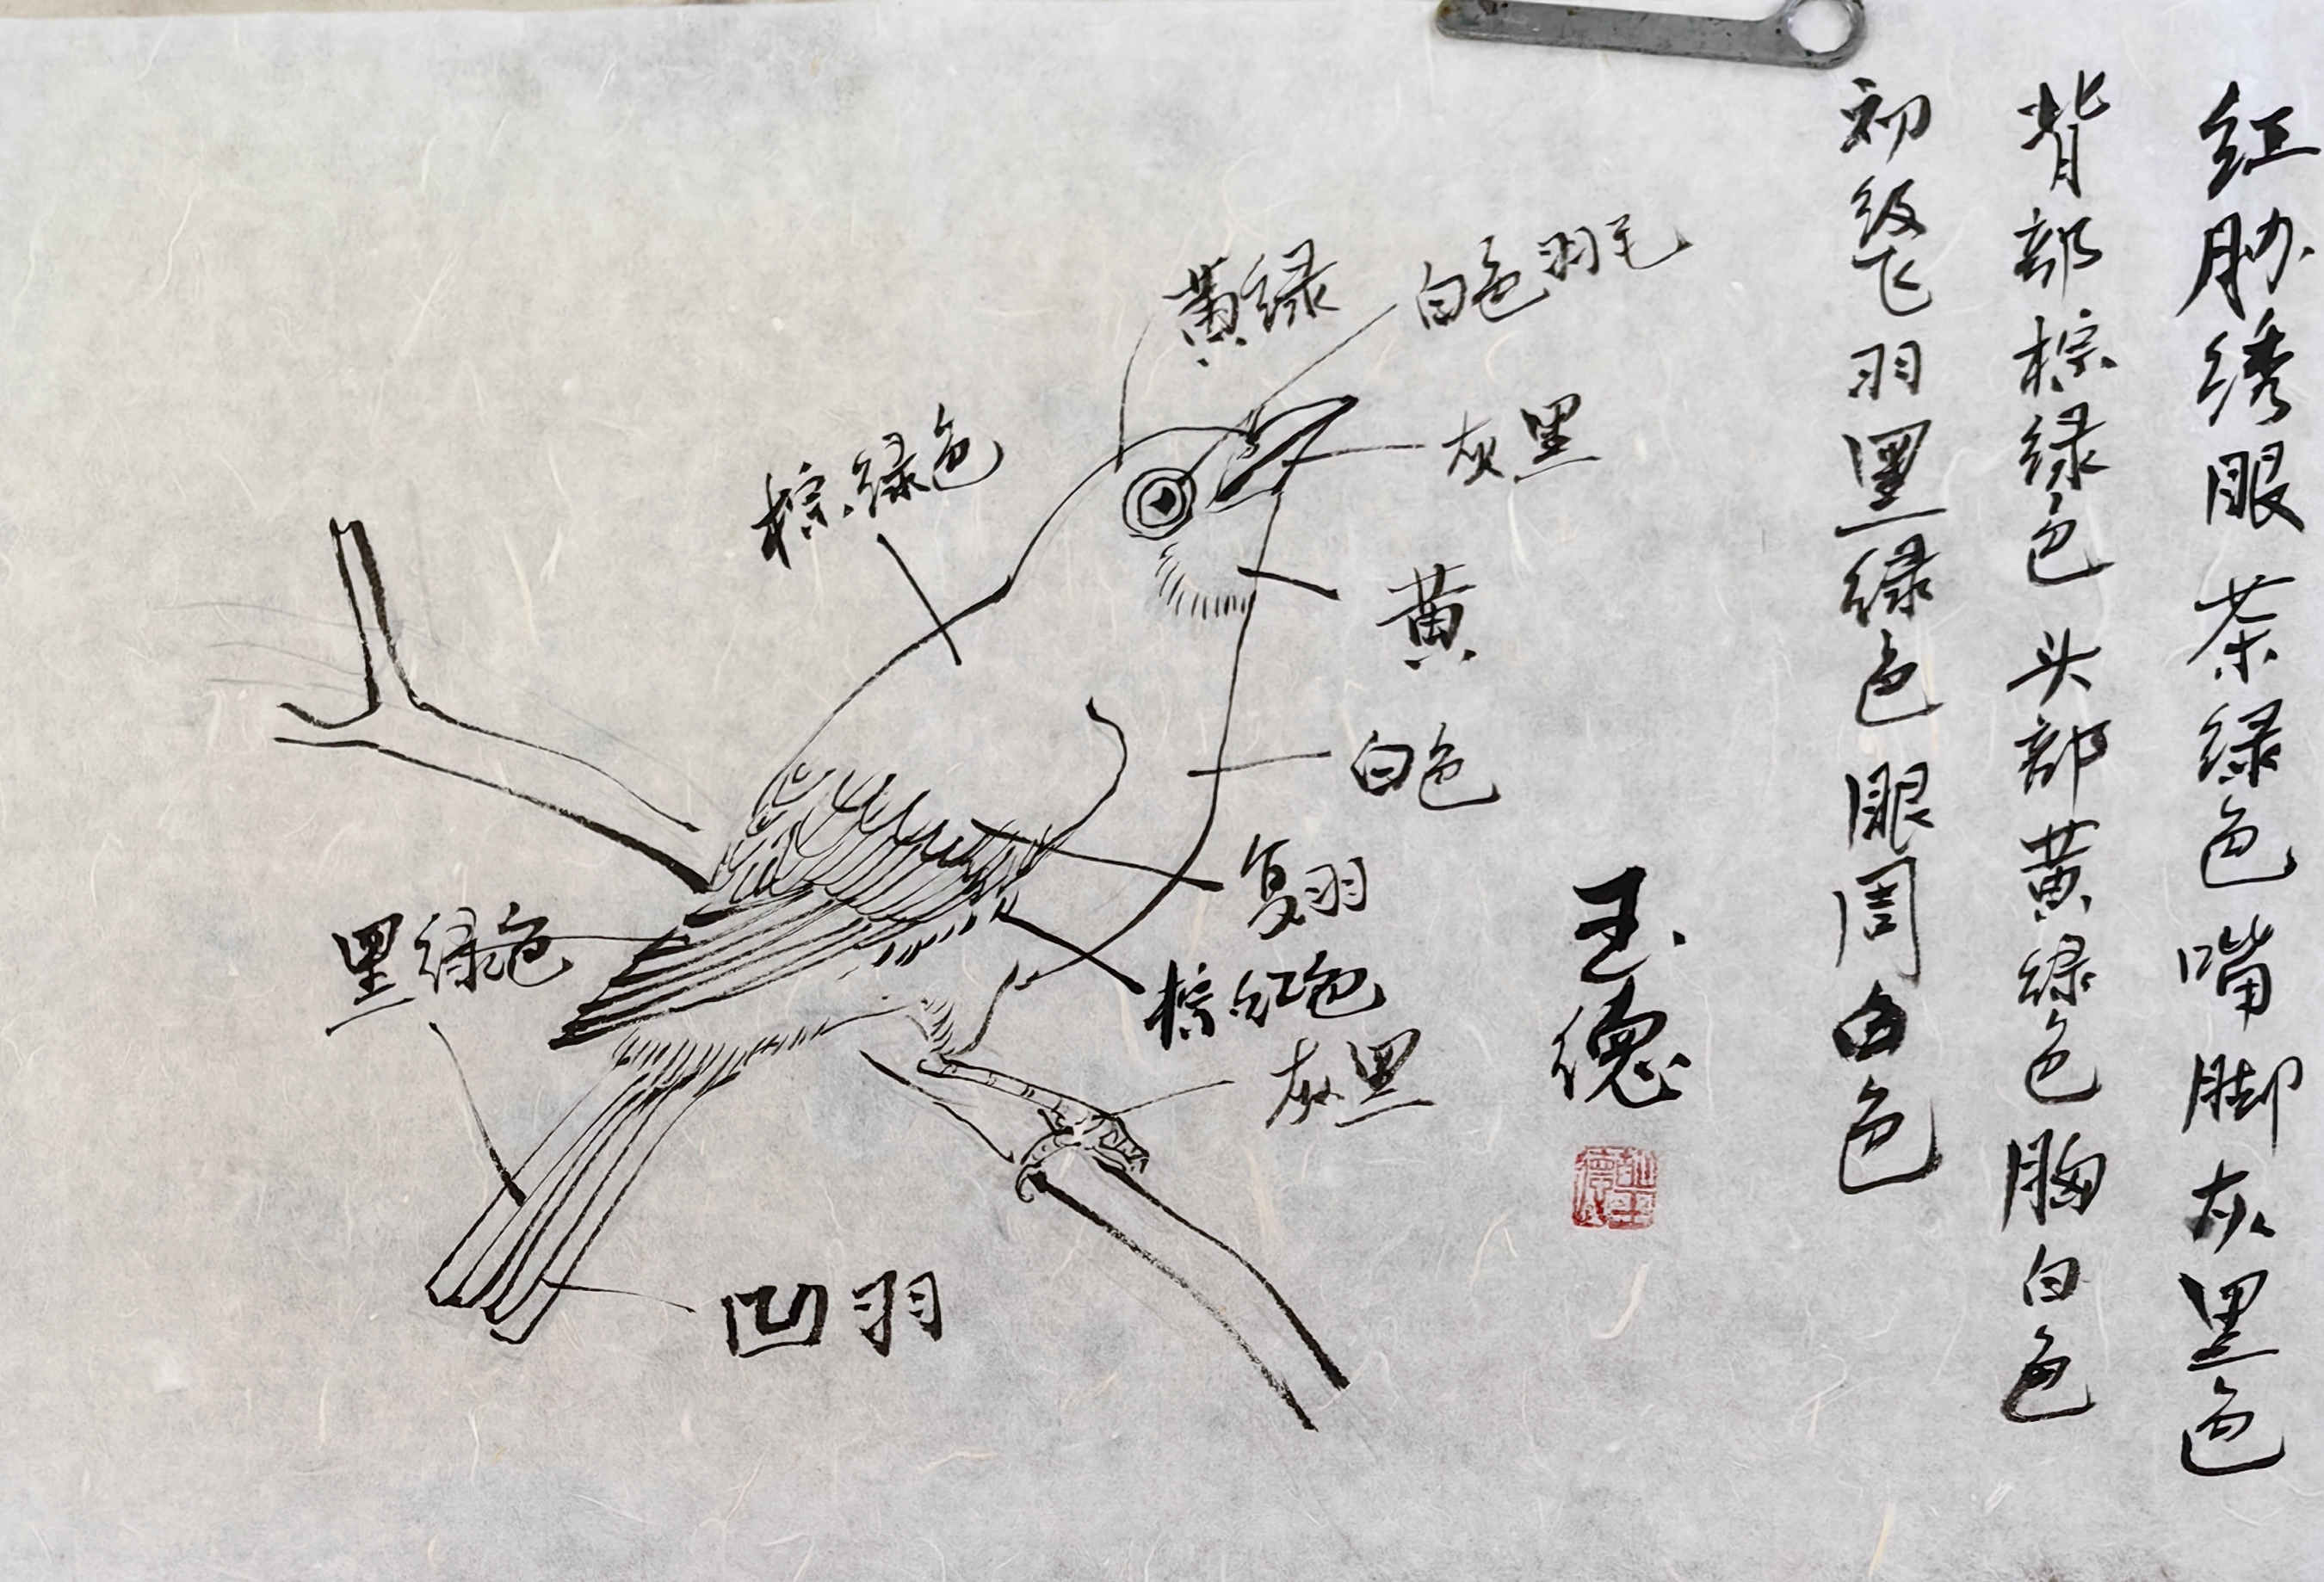 红胁绣眼茶绿色嘴脚灰黑色
背部棕绿色头部黄绿色胸白色
初级飞羽黑绿色眼周白色
玉德
黄绿
白色羽毛
灰黑
棕绿色
黄
白色
复羽
黑绿色
棕红色
灰黑
凹羽